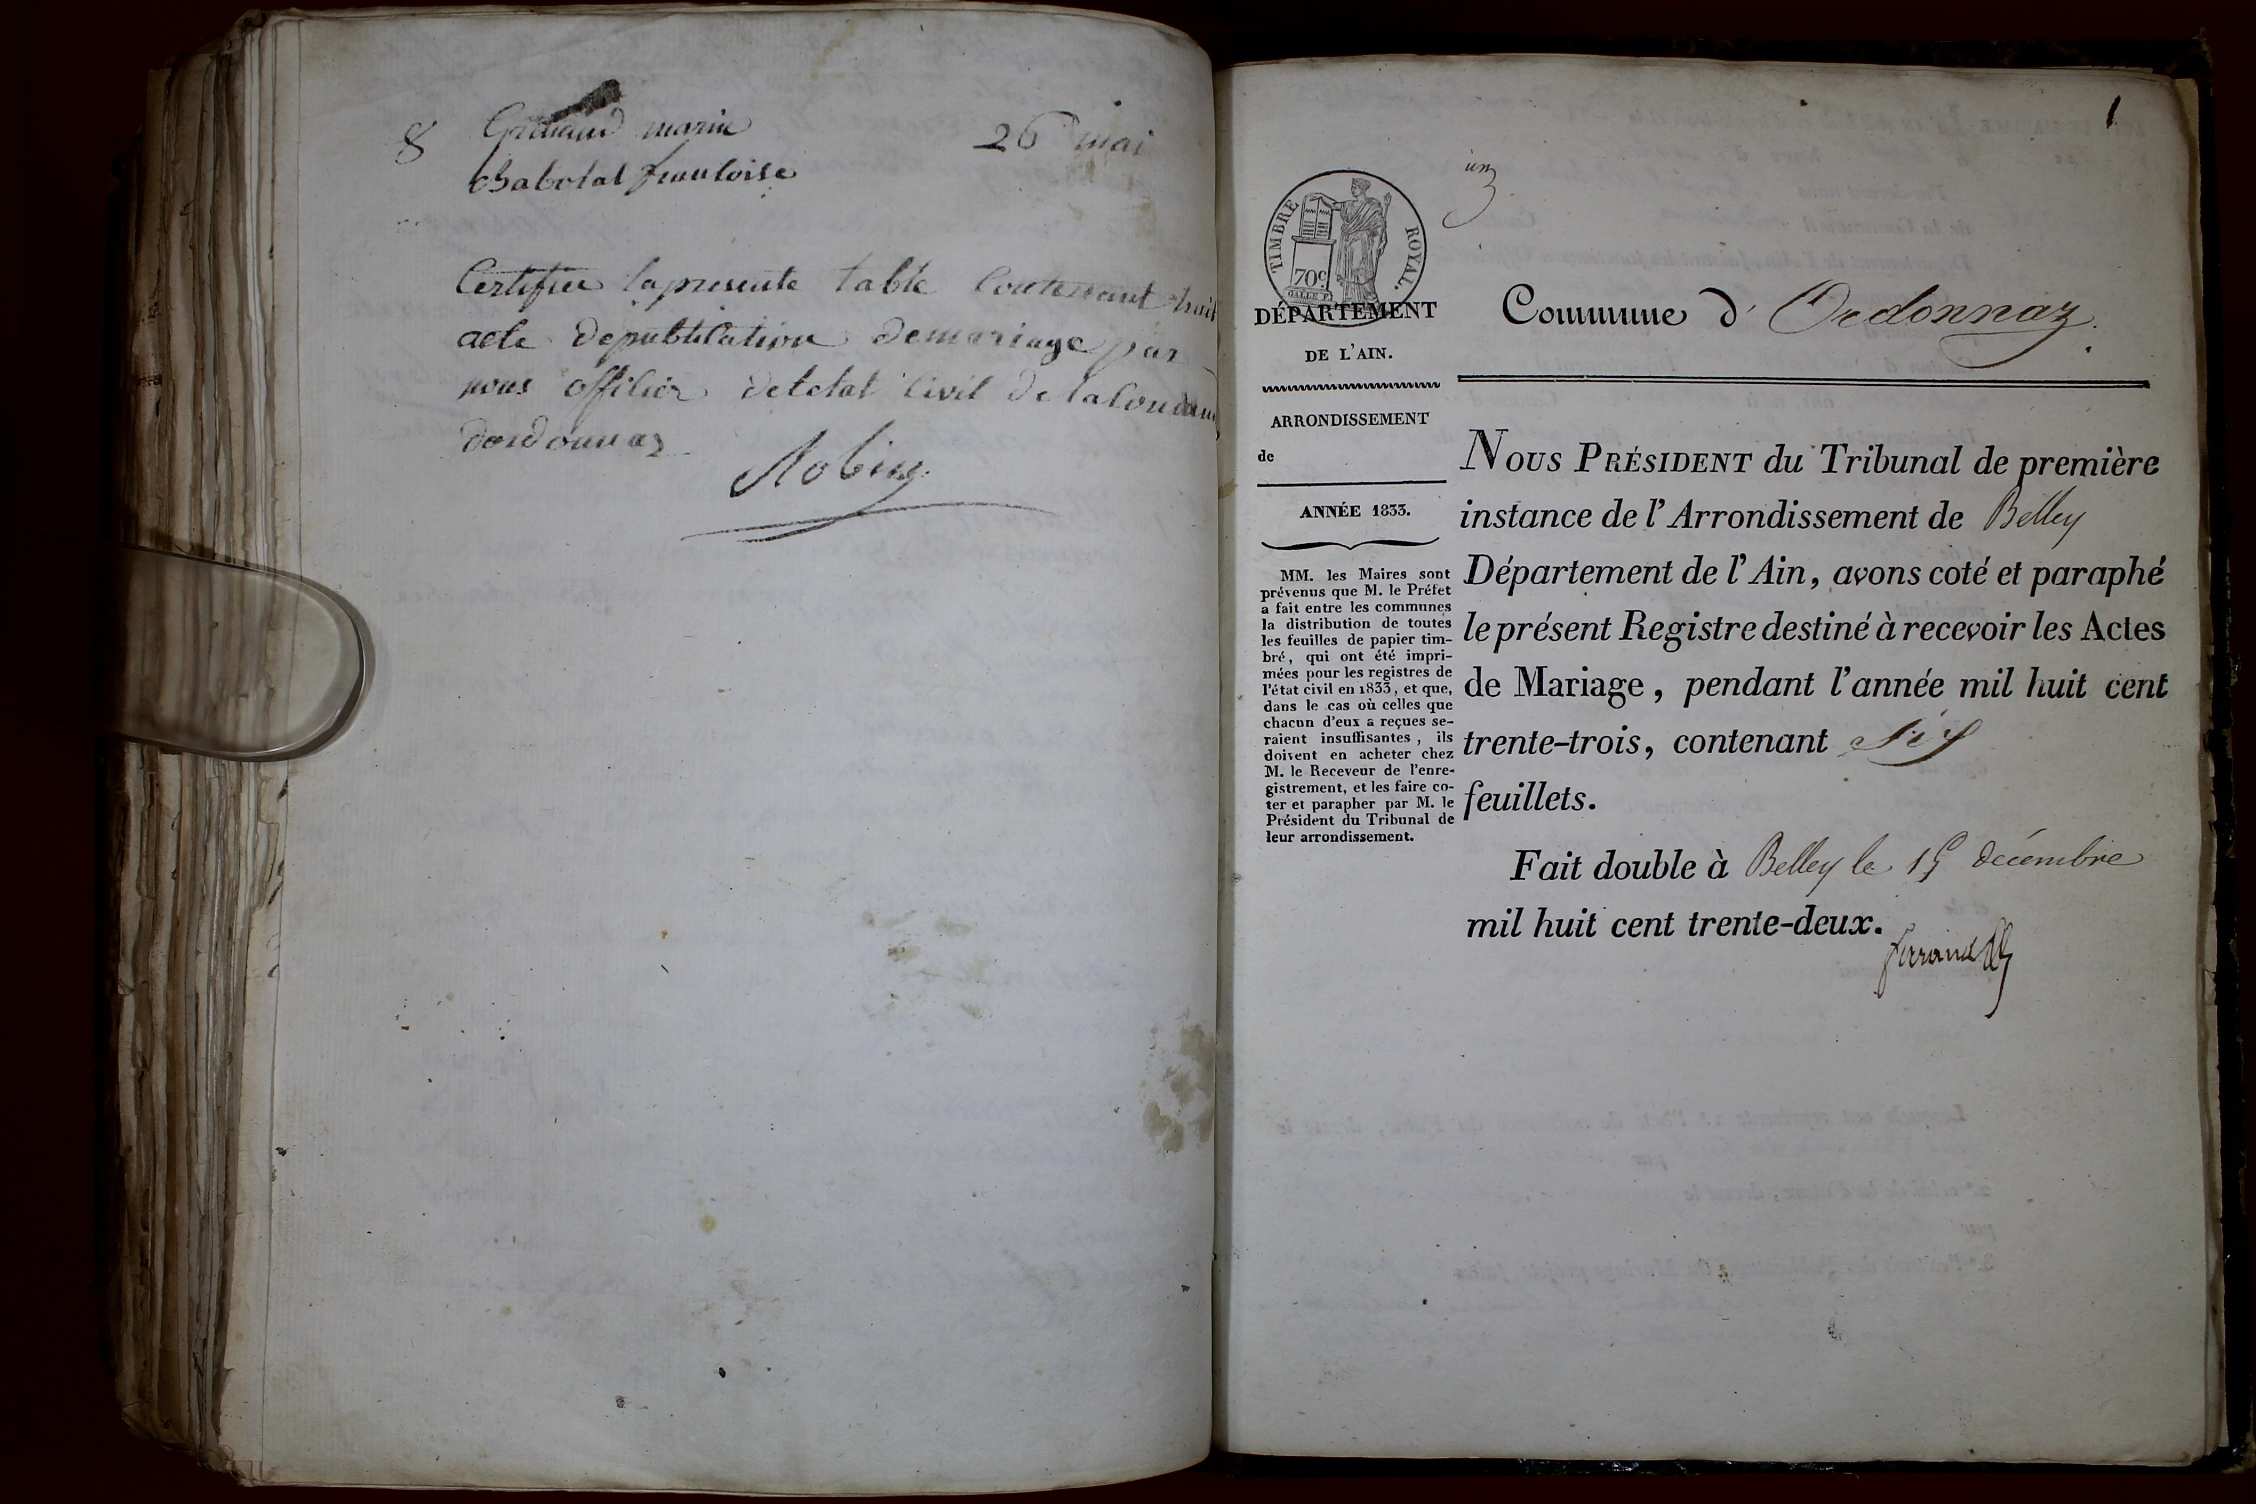 8 marie 26 mai
Chabotat francoise
Certifier la presente table contenant huit
acte de publication de mariage par
nous officier de letat civil de la
dordonnaz
Robin
1
un
TIMBRE ROYAL.
70c.
DÉPARTEMENT
DE L'AIN.
ARRONDISSEMENT
de
ANNÉE 1833.
MM. les Maires sont
prévenus que M. le Préfet
a fait entre les communes
la distribution de toutes
les feuilles de papier tim-
bré, qui ont été impri-
mées pour les registres de
l'état civil en 1833, et que,
dans le cas où celles que
chacun d'eux a reçues se-
raient insuffisantes, ils
doivent en acheter chez
M. le Receveur de l'enre-
gistrement, et les faire co-
ter et parapher par M. le
Président du Tribunal de
leur arrondissement.
Commune d' Ordonnaz.
NOUS PRÉSIDENT du Tribunal de première
instance de l'Arrondissement de Belley
Département de l'Ain, avons coté et paraphé
le présent Registre destiné à recevoir les Actes
de Mariage, pendant l'année mil huit cent
trente-trois, contenant six
feuillets.
Fait double à Belley le 15 décembre
mil huit cent trente-deux.